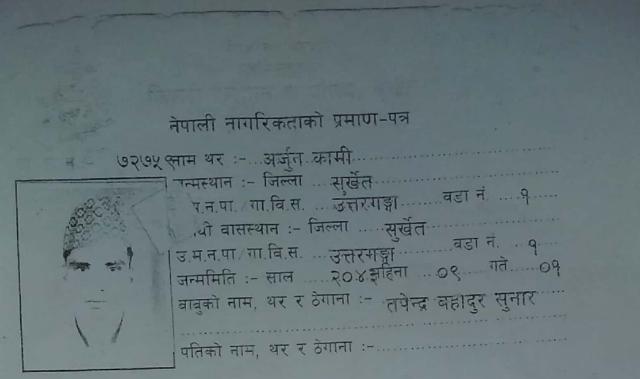 नेपाली नागरिकताको प्रमाण-पत्र
नाम थर :- अर्जुन कामी
जन्मस्थान :- जिल्ला सुर्खेत
न.पा./गा.वि.स. उत्तरगङ्गा वडा नं. १
वासस्थान :- जिल्ला सुर्खेत
उ.म.न.पा/गा.वि.स. उत्तरगङ्गा वडा नं. १
जन्ममिति :- साल महिना ०९ गते ०१
बाबुको नाम, थर र ठेगाना :- तपेन्द्र बहादुर सुनार
पतिको नाम, थर र ठेगाना :-